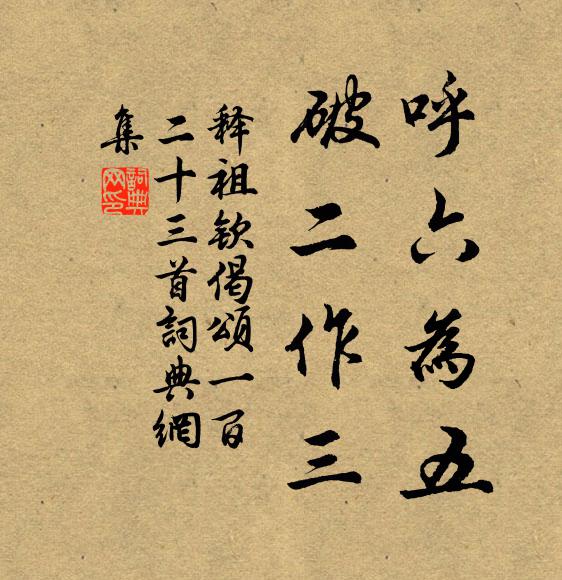 呼六為五
破二作三
釋祖欽偈頌一百
二十三首詞典網
集
詞典
网印